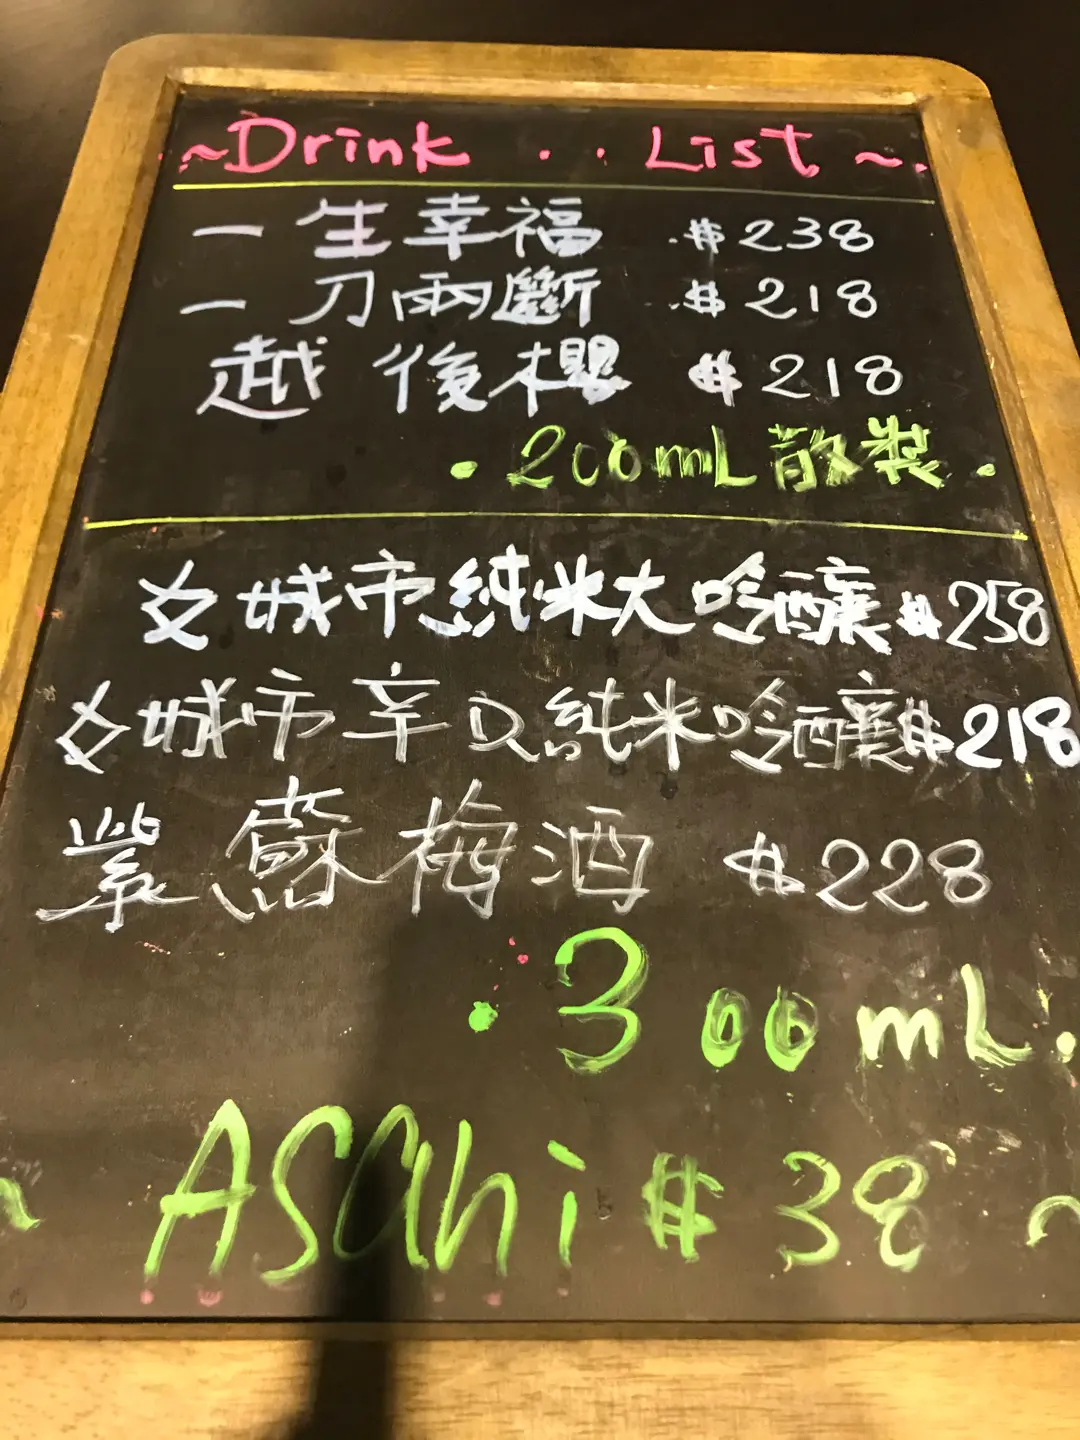 ~Drink .. List~
一生幸福 $238
一刀兩斷 $218
越後櫻 $218
·200mL散裝·
女城市純米大吟釀$258
女城市辛口純米吟釀$218
紫蘇梅酒 $228
·300mL.
~ ASahi $38 ~